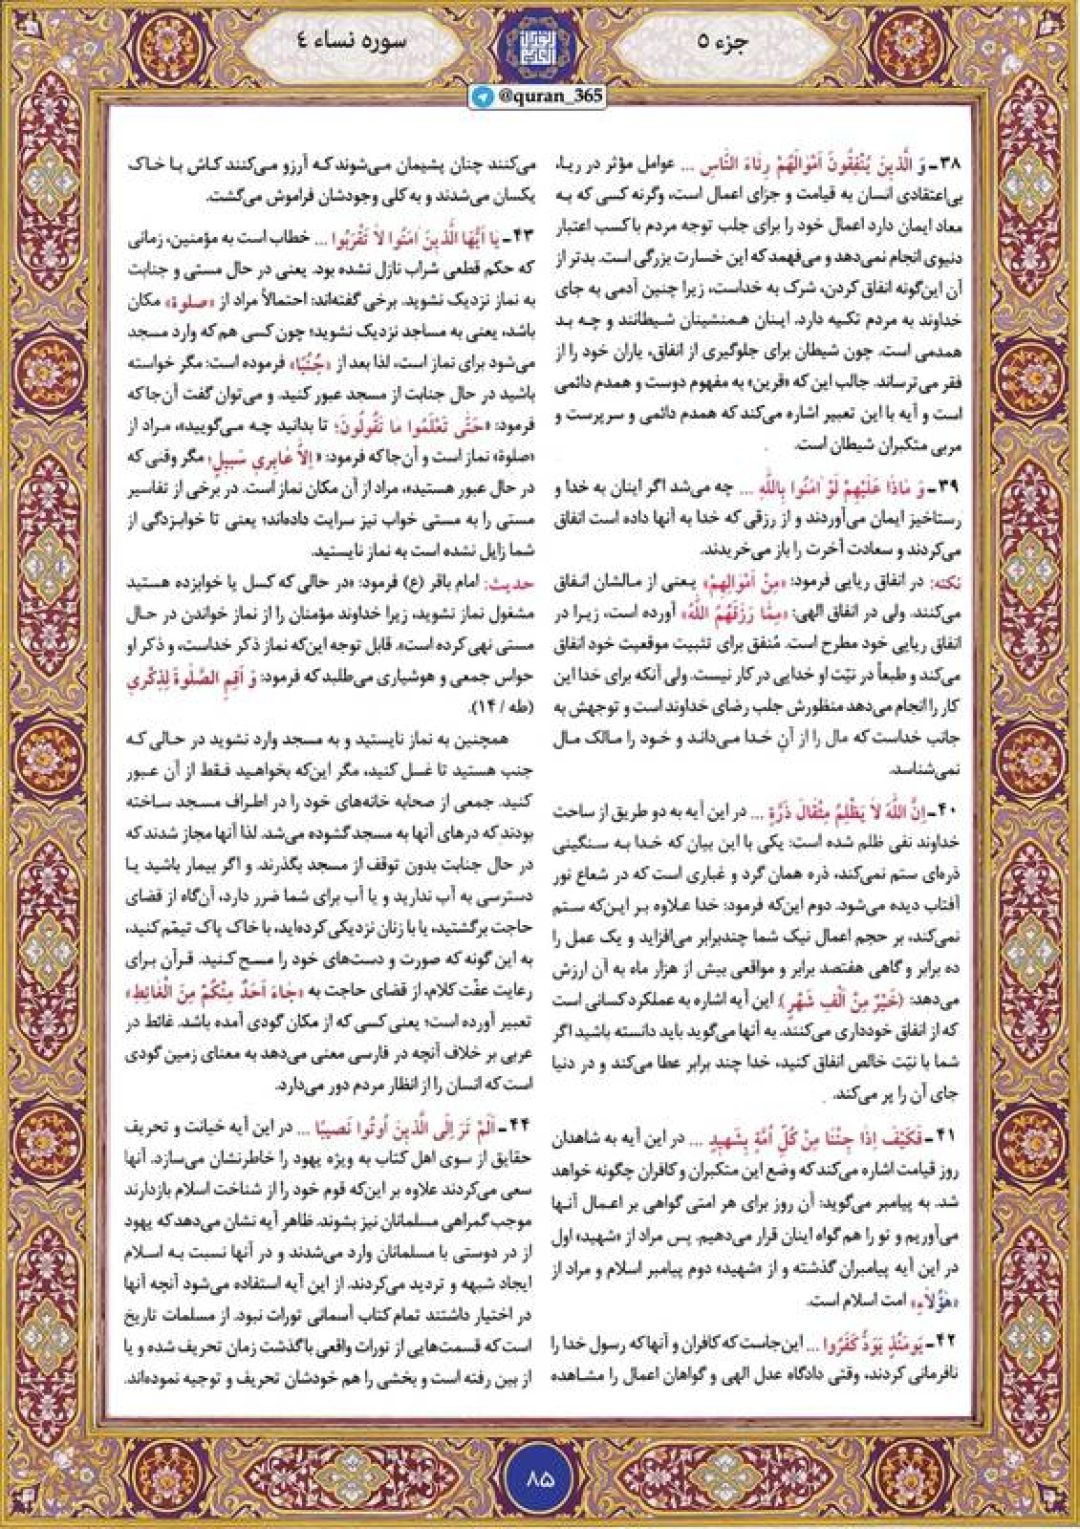 جزء ۵
سوره نساء ٤
@quran_365
۳۸ـ وَ الَّذینَ یُنْفِقُونَ اَمْوٰالَهُمْ رِئٰاءَ النّٰاسِ ... عوامل مؤثر در ریا،
بی‌اعتقادی انسان به قیامت و جزای اعمال است، وگرنه کسی که به
معاد ایمان دارد اعمال خود را برای جلب توجه مردم با کسب اعتبار
دنیوی انجام نمی‌دهد و می‌فهمد که این خسارت بزرگی است. بدتر از
آن این‌گونه انفاق کردن، شرک به خداست، زیرا چنین آدمی به جای
خداوند به مردم تکیه دارد. اینان همنشینان شیطانند و چه بد
همدمی است. چون شیطان برای جلوگیری از انفاق، یاران خود را از
فقر می‌ترساند. جالب این که «قرین» به مفهوم دوست و همدم دائمی
است و آیه با این تعبیر اشاره می‌کند که همدم دائمی و سرپرست و
مربی متکبران شیطان است.
۳۹ـ وَ مٰاذٰا عَلَیْهِمْ لَوْ اٰمَنُوا بِاللّٰهِ ... چه می‌شد اگر اینان به خدا و
رستاخیز ایمان می‌آوردند و از رزقی که خدا به آنها داده است انفاق
می‌کردند و سعادت آخرت را باز می‌خریدند.
نکته: در انفاق ریایی فرمود: «مِنْ اَمْوٰالِهِمْ» یعنی از مالشان انفاق
می‌کنند. ولی در انفاق الهی: «مِمّٰا رَزَقَهُمُ اللّٰهُ» آورده است، زیرا در
انفاق ریایی خود مطرح است. مُنفق برای تثبیت موقعیت خود انفاق
می‌کند و طبعاً در نیّت او خدایی در کار نیست. ولی آنکه برای خدا این
کار را انجام می‌دهد منظورش جلب رضای خداوند است و توجهش به
جانب خداست که مال را از آنِ خدا می‌داند و خود را مالک مال
نمی‌شناسد.
۴۰ـ اِنَّ اللّٰهَ لاٰ یَظْلِمُ مِثْقٰالَ ذَرَّةٍ ... در این آیه به دو طریق از ساحت
خداوند نفی ظلم شده است: یکی با این بیان که خدا به سنگینی
ذره‌ای ستم نمی‌کند، ذره همان گرد و غباری است که در شعاع نور
آفتاب دیده می‌شود. دوم این‌که فرمود: خدا علاوه بر این‌که ستم
نمی‌کند، بر حجم اعمال نیک شما چندبرابر می‌افزاید و یک عمل را
ده برابر و گاهی هفتصد برابر و مواقعی بیش از هزار ماه به آن ارزش
می‌دهد: (خَیْرٌ مِنْ اَلْفِ شَهْرٍ). این آیه اشاره به عملکرد کسانی است
که از انفاق خودداری می‌کنند. به آنها می‌گوید باید دانسته باشید اگر
شما با نیّت خالص انفاق کنید، خدا چند برابر عطا می‌کند و در دنیا
جای آن را پر می‌کند.
۴۱ـ فَکَیْفَ اِذٰا جِئْنٰا مِنْ کُلِّ اُمَّةٍ بِشَهیدٍ ... در این آیه به شاهدان
روز قیامت اشاره می‌کند که وضع این متکبران و کافران چگونه خواهد
شد. به پیامبر می‌گوید: آن روز برای هر امتی گواهی بر اعمال آنها
می‌آوریم و تو را هم گواه اینان قرار می‌دهیم. پس مراد از «شهید» اول
در این آیه پیامبران گذشته و از «شهید» دوم پیامبر اسلام و مراد از
«هٰؤُلاٰءِ» امت اسلام است.
۴۲ـ یَوْمَئِذٍ یَوَدُّ کَفَرُوا ... این‌جاست که کافران و آنها که رسول خدا را
نافرمانی کردند، وقتی دادگاه عدل الهی و گواهان اعمال را مشاهده
می‌کنند چنان پشیمان می‌شوند که آرزو می‌کنند کاش با خاک
یکسان می‌شدند و به کلی وجودشان فراموش می‌گشت.
۴۳ـ یٰا اَیُّهَا الَّذینَ اٰمَنُوا لاٰ تَقْرَبُوا ... خطاب است به مؤمنین، زمانی
که حکم قطعی شراب نازل نشده بود. یعنی در حال مستی و جنابت
به نماز نزدیک نشوید. برخی گفته‌اند: احتمالاً مراد از «صلوة» مکان
باشد، یعنی به مساجد نزدیک نشوید؛ چون کسی هم که وارد مسجد
می‌شود برای نماز است، لذا بعد از «جُنُبًا» فرموده است: مگر خواسته
باشید در حال جنابت از مسجد عبور کنید. و می‌توان گفت آن‌جا که
فرمود: «حَتّٰی تَعْلَمُوا مٰا تَقُولُونَ؛ تا بدانید چه می‌گویید»، مراد از
«صلوة» نماز است و آن‌جا که فرمود: «اِلاّٰ عٰابِرِي سَبیلٍ؛ مگر وقتی که
در حال عبور هستید»، مراد از آن مکان نماز است. در برخی از تفاسیر
مستی را به مستی خواب نیز سرایت داده‌اند؛ یعنی تا خوابزدگی از
شما زایل نشده است به نماز نایستید.
حدیث: امام باقر (ع) فرمود: «در حالی که کسل یا خوابزده هستید
مشغول نماز نشوید، زیرا خداوند مؤمنان را از نماز خواندن در حال
مستی نهی کرده است». قابل توجه این‌که نماز ذکر خداست، و ذکر او
حواس جمعی و هوشیاری می‌طلبد که فرمود: وَ اَقِمِ الصَّلٰوةَ لِذِکْري
(طه / ۱۴).
همچنین به نماز نایستید و به مسجد وارد نشوید در حالی که
جنب هستید تا غسل کنید، مگر این‌که بخواهید فقط از آن عبور
کنید. جمعی از صحابه خانه‌های خود را در اطراف مسجد ساخته
بودند که درهای آنها به مسجد گشوده می‌شد. لذا آنها مجاز شدند که
در حال جنابت بدون توقف از مسجد بگذرند. و اگر بیمار باشید یا
دسترسی به آب ندارید و یا آب برای شما ضرر دارد، آن‌گاه از قضای
حاجت برگشتید، یا با زنان نزدیکی کرده‌اید، با خاک پاک تیمّم کنید،
به این گونه که صورت و دست‌های خود را مسح کنید. قرآن برای
رعایت عفّت کلام، از قضای حاجت به «جٰاءَ اَحَدٌ مِنْکُمْ مِنَ الْغٰائِطِ»
تعبیر آورده است؛ یعنی کسی که از مکان گودی آمده باشد. غائط در
عربی بر خلاف آنچه در فارسی معنی می‌دهد به معنای زمین گودی
است که انسان را از انظار مردم دور می‌دارد.
۴۴ـ اَلَمْ تَرَ اِلَی الَّذینَ اُوتُوا نَصیبًا ... در این آیه خیانت و تحریف
حقایق از سوی اهل کتاب به ویژه یهود را خاطرنشان می‌سازد. آنها
سعی می‌کردند علاوه بر این‌که قوم خود را از شناخت اسلام بازدارند
موجب گمراهی مسلمانان نیز بشوند. ظاهر آیه نشان می‌دهد که یهود
از در دوستی با مسلمانان وارد می‌شدند و در آنها نسبت به اسلام
ایجاد شبهه و تردید می‌کردند. از این آیه استفاده می‌شود آنچه آنها
در اختیار داشتند تمام کتاب آسمانی تورات نبود. از مسلمات تاریخ
است که قسمت‌هایی از تورات واقعی با گذشت زمان تحریف شده و یا
از بین رفته است و بخشی را هم خودشان تحریف و توجیه نموده‌اند.
۸۵